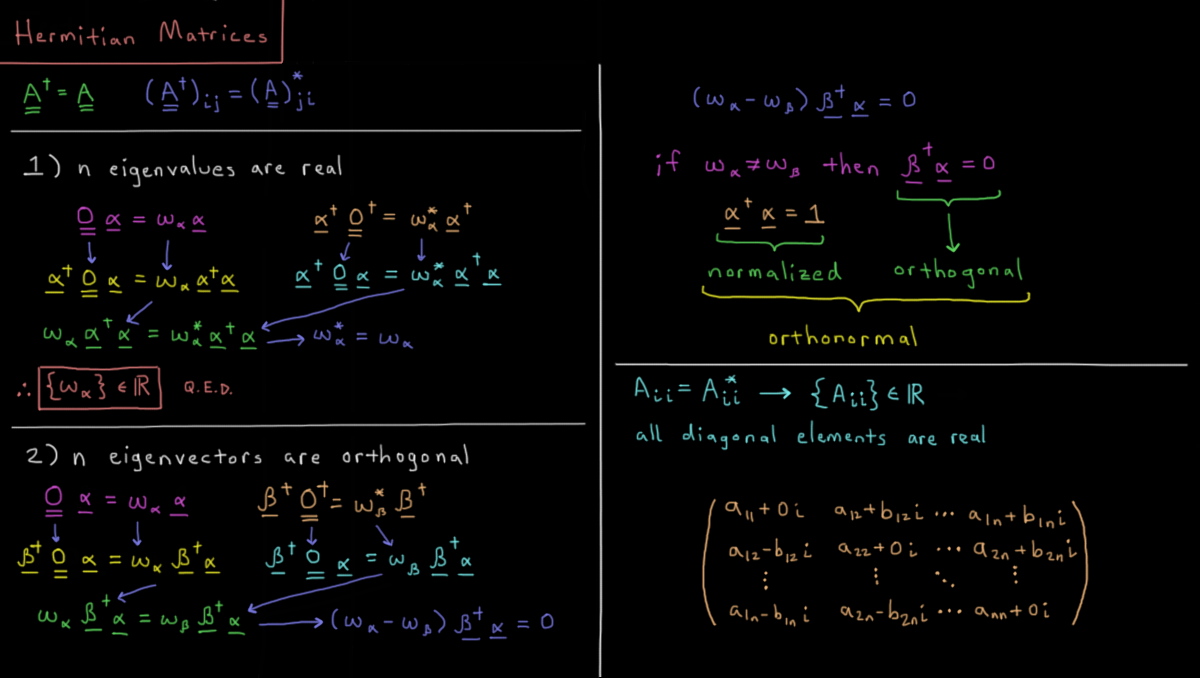 Hermitian Matrices
A† = A (A†)ij = (A)*ji
1) n eigenvalues are real
O α = ωα α α† O† = ω*α α†
α† O α = ωα α†α α† O α = ω*α α† α
ωα α† α = ω*α α† α → ω*α = ωα
∴ {ωα} ∈ ℝ Q.E.D.
2) n eigenvectors are orthogonal
O α = ωα α β† O† = ω*β β†
β† O α = ωα β†α β† O α = ωβ β†α
ωα β† α = ωβ β† α → (ωα - ωβ) β† α = 0
(ωα - ωβ) β† α = 0
if ωα ≠ ωβ then β† α = 0
α† α = 1
normalized orthogonal
orthonormal
Aii = A*ii → {Aii} ∈ ℝ
all diagonal elements are real
a11 + 0i a12 + b12i ... a1n + b1ni
a12 - b12i a22 + 0i ... a2n + b2ni
⋮ ⋮ ⋱ ⋮
a1n - b1ni a2n - b2ni ... ann + 0i